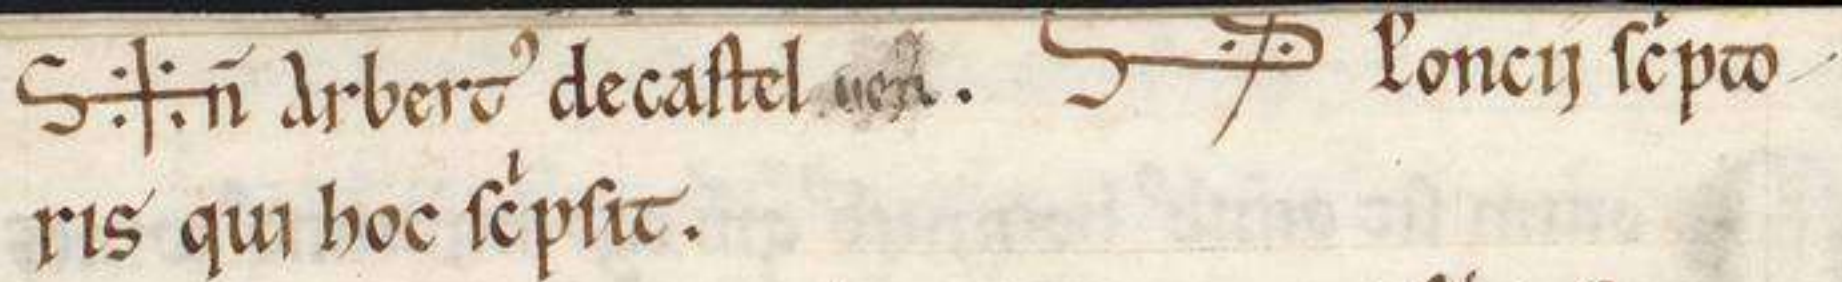 S+n̄ Arbert᷒ de castel uen̄. S Poncij sc͛pto
ris qui hoc scͥpsit.